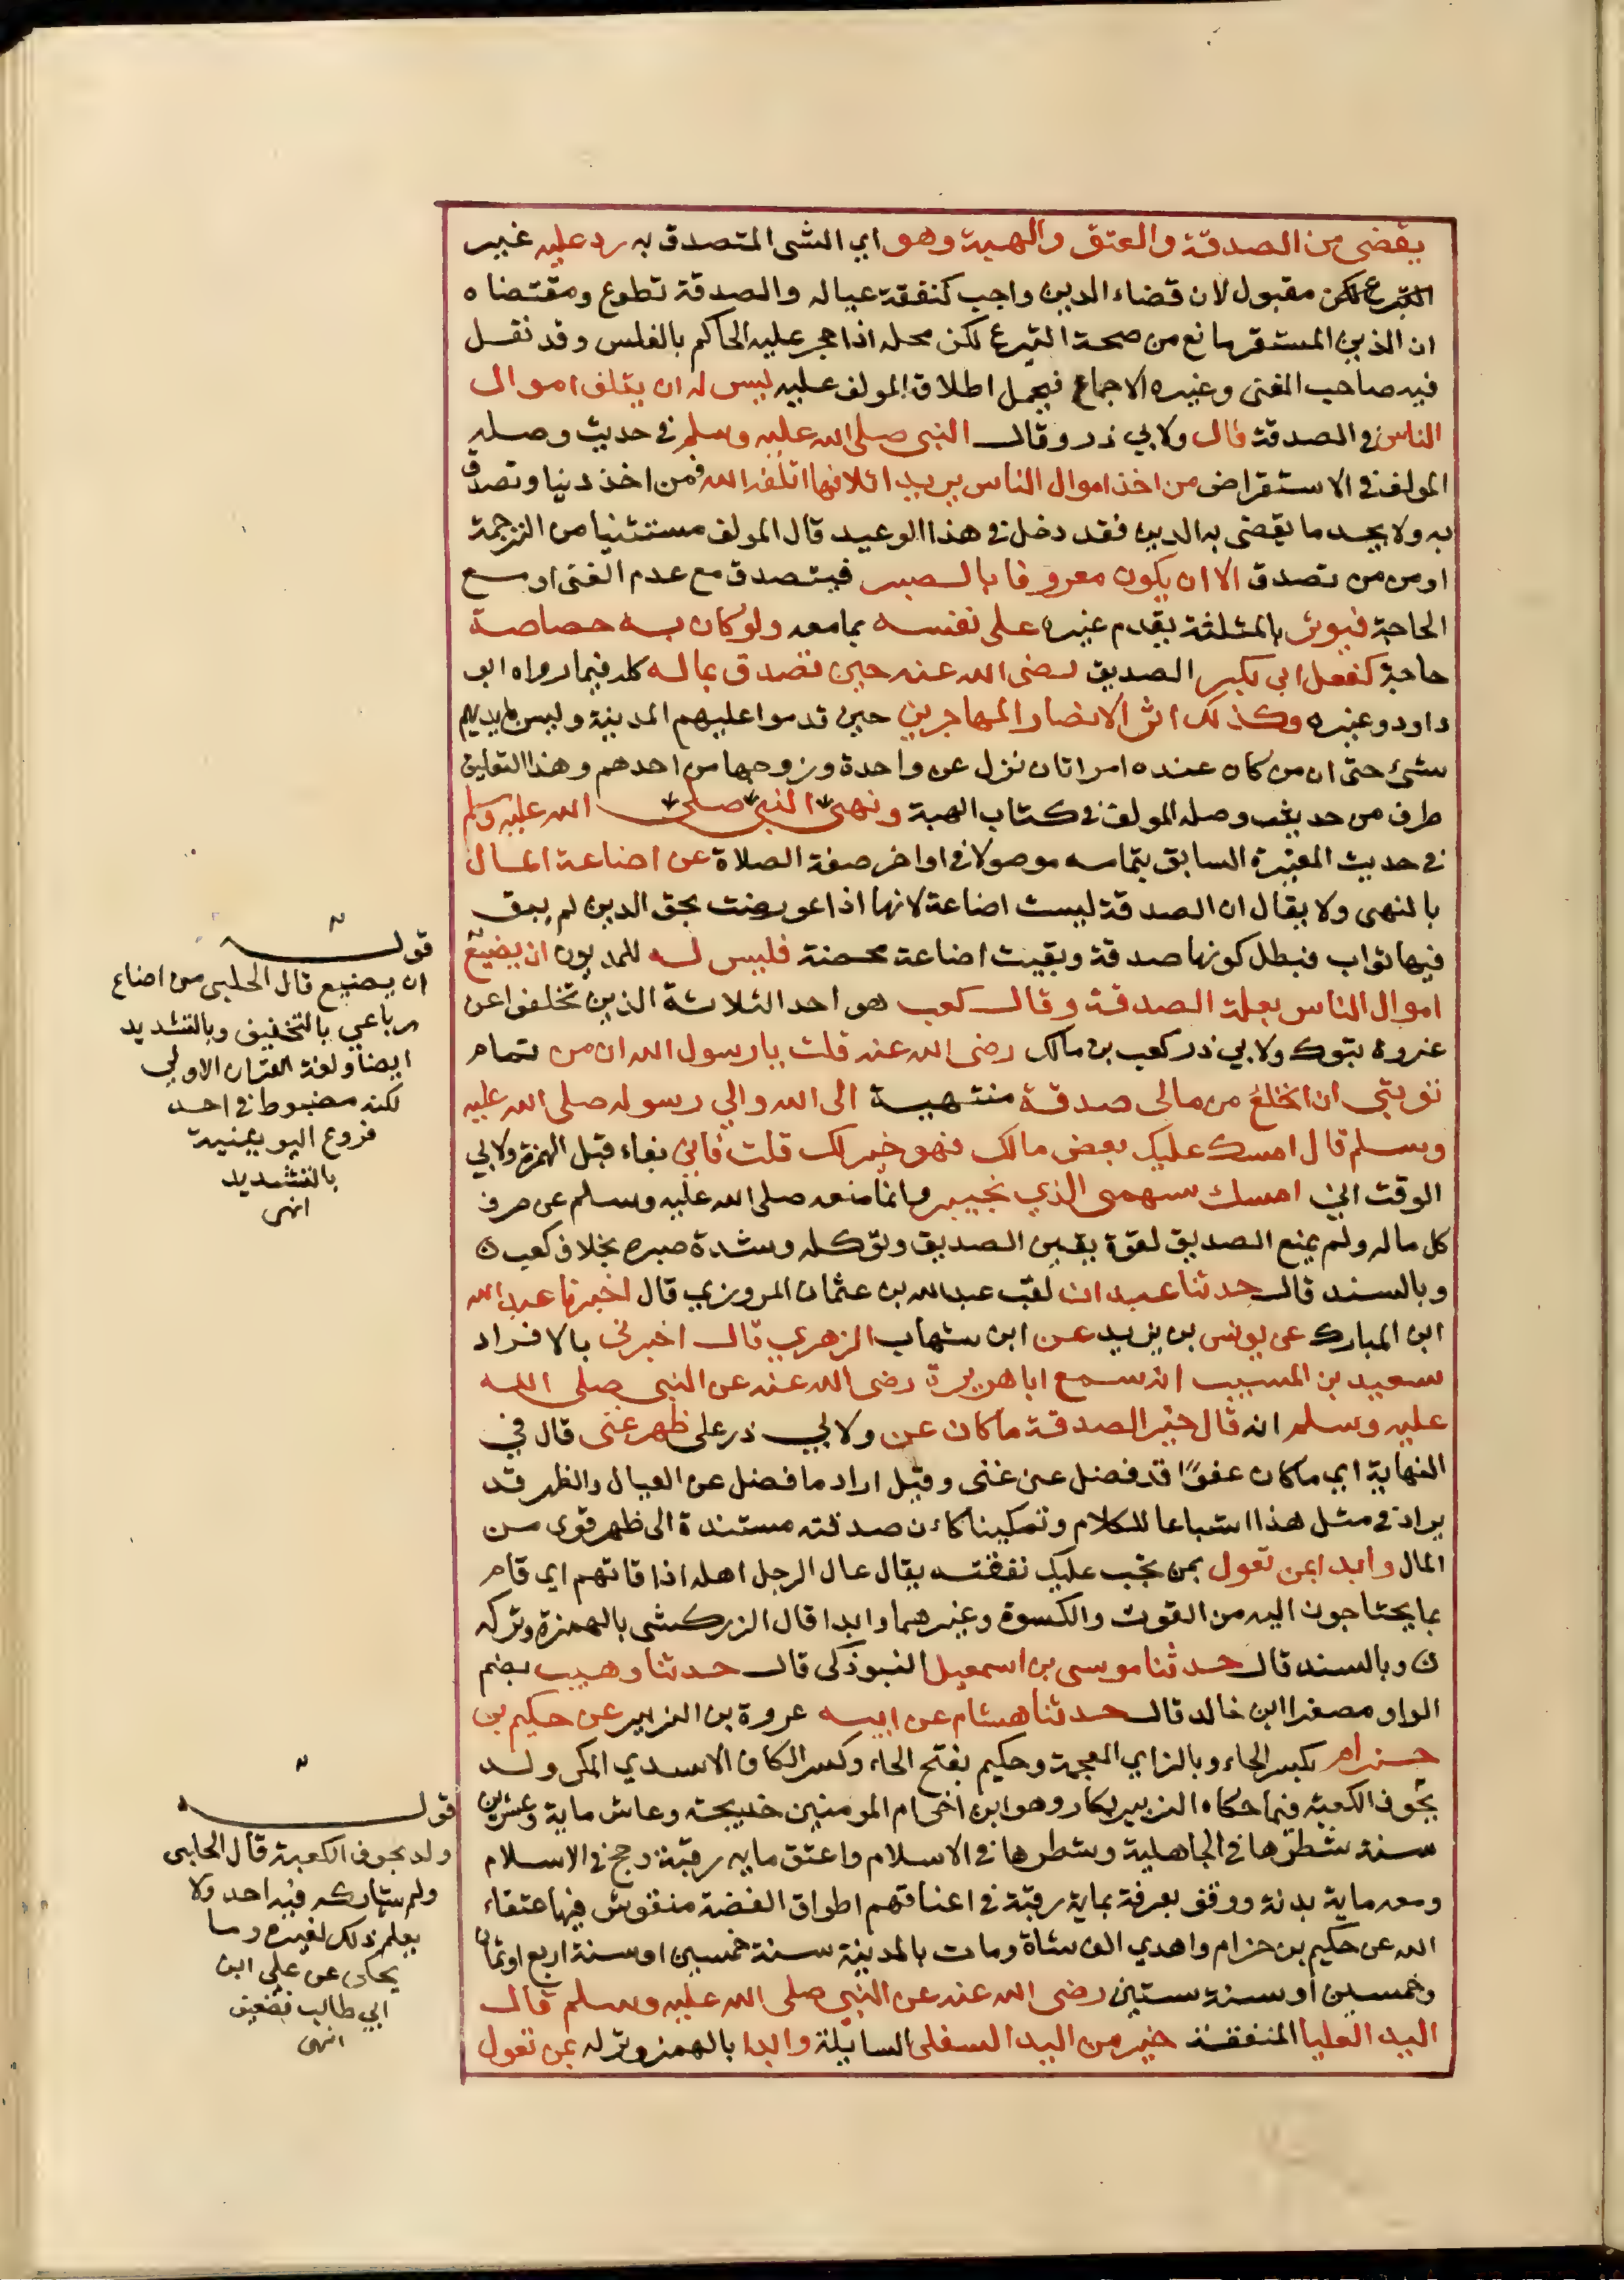 يقضى من الصدقة والعتق والهبة وهو اي الشى المتصدق به رد عليه غير
لكن مقبول لان قضاء الدين واجب كنفقة عياله والصدقة تطوع ومقتضاه
ان الدين المستقر مانع من صحة التبرع لكن محله اذا حجر عليه الحاكم بالفلس وقد نقل
فيه صاحب المغنى وغيره الاجماع فيحمل اطلاق المولف عليه ليس له ان يتلف اموال
الناس في الصدقة قال ولابي ذر وقال النبى صلى الله عليه وسلم في حديث وصله
المولف في الاستقراض من اخذ اموال الناس يريد اتلافها اتلفه الله فمن اخذ دينا وتصدق
به ولا يجد ما يقضى به الدين فقد دخل في هذا الوعيد قال المولف مستثنيا من الترجمة
او من من تصدق الا ان يكون معروفا بالصبر فيتصدق مع عدم الغنى او مع
الحاجة فيوثر بالمثلثة يقدم غيره على نفسه بما معه ولو كان به خصاصة
حاجة كفعل ابى بكر الصديق رضى الله عنه حين تصدق بماله كله فيما رواه ابو
داود وغيره وكذلك اثر الانصار المهاجرين حين قدموا عليهم المدينة وليس بايديهم
شئ حتى ان من كان عنده امراتان نزل عن واحدة وزوجها من احدهم وهذا التعليق
طرف من حديث وصله المولف في كتاب الهبة ونهى النبى صلى الله عليه وسلم
في حديث المغيرة السابق بتمامه موصولا في اواخر صفة الصلاة عن اضاعة المال
بالنهى ولا يقال ان الصدقة ليست اضاعة لانها اذا عورضت بحق الدين لم يبق
فيها ثواب فبطل كونها صدقة وبقيت اضاعة محضة فليس له للمديون ان يضيع
اموال الناس بعلة الصدقة وقال كعب هو احد الثلاثة الذين تخلفوا عن
غزوة تبوك ولابي ذر كعب بن مالك رضى الله عنه قلت يا رسول الله ان من تمام
توبتي ان انخلع من مالى صدقة منتهية الى الله والي رسوله صلى الله عليه
وسلم قال امسك عليك بعض مالك فهو خير لك قلت فانى بفاء قبل الهمزة ولابي
الوقت انى امسك سهمى الذي بخيبر وانما منعه صلى الله عليه وسلم عن صرف
كل ماله ولم يمنع الصديق لقوة يقين الصديق وتوكله وشدة صبره بخلاف كعب ن
وبالسند قال حدثنا عبدان لقب عبد الله بن عثمان المروزي قال اخبرنا عبد الله
ابن المبارك عن يونس بن يزيد عن ابن شهاب الزهري قال اخبرنى بالافراد
سعيد بن المسيب انه سمع ابا هريرة رضى الله عنه عن النبى صلى الله
عليه وسلم انه قال خير الصدقة ما كان عن ولابي ذر على ظهر غنى قال في
النهاية اي ما كان عفوًا قد فضل عن غنى وقيل اراد ما فضل عن العيال والظهر قد
يراد في مثل هذا اشباعا للكلام وتمكينا كان صدقته مستندة الى ظهر قوى من
المال وابدا بمن تعول بمن تجب عليك نفقته يقال عال الرجل اهله اذا قاتهم اي قام
بما يحتاجون اليه من القوت والكسوة وغيرهما وابدا قال الزركشى بالهمزة وتركه
ن وبالسند قال حدثنا موسى بن اسمعيل التبوذكى قال حدثنا وهيب بضم
الواو مصغرا ابن خالد قال حدثنا هشام عن ابيه عروة بن الزبير عن حكيم بن
حزام بكسر الحاء وبالزاي المعجمة وحكيم بفتح الحاء وكسر الكاف الاسدي المكى ولد
بجوف الكعبة فيما حكاه الزبير بكار وهو ابن اخى ام المومنين خديجة وعاش ماية وعشرين
سنة شطرها في الجاهلية وشطرها في الاسلام واعتق ماية رقبة وحج في الاسلام
ومعه ماية بدنة ووقف بعرفة بماية رقبة في اعناقهم اطواق الفضة منقوش فيها عتقاء
الله عن حكيم بن حزام واهدي الف شاة ومات بالمدينة سنة خمسين او سنة اربع او ثمان
وخمسين او سنة ستين رضى الله عنه عن النبى صلى الله عليه وسلم قال
اليد العليا المنفقة خير من اليد السفلى السايلة وابدا بالهمز وتركه بمن تعول
قوله
ان يضيع قال الحلبى من اضاع
رباعي بالتخفيف وبالتشديد
ايضا ولغة القران الاولي
لكنه مضبوط في احد
فروع اليونينية
بالتشديد
انهى
قوله
ولد بجوف الكعبة قال الحلبى
ولم يشاركه فيه احد ولا
يعلم ذلك لغيره وما
يحكى عن علي ابن
ابي طالب فضعيف
انهى